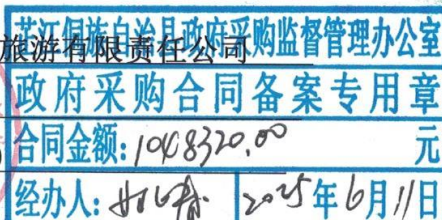 芷江侗族自治县政府采购监督管理办公室
旅游有限责任公司
政府采购合同备案专用章
合同金额:1048320.00 元
经办人: 2025年6月11日